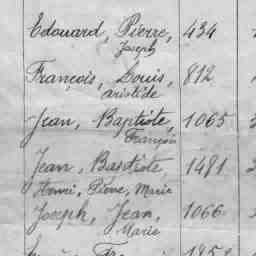 Edouard, Pierre, 434
Joseph
François, Louis, 812
aristide
Jean, Baptiste, 1065
François
Jean, Baptiste, 1481
Henri, Pierre, Marie
Joseph, Jean, 1066
Marie